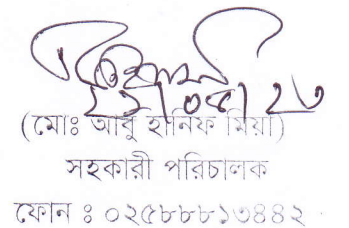 (মোঃ আবু হানিফ মিয়া)
সহকারী পরিচালক
ফোন ঃ ০২৫৮৮৮১৩৪৪২